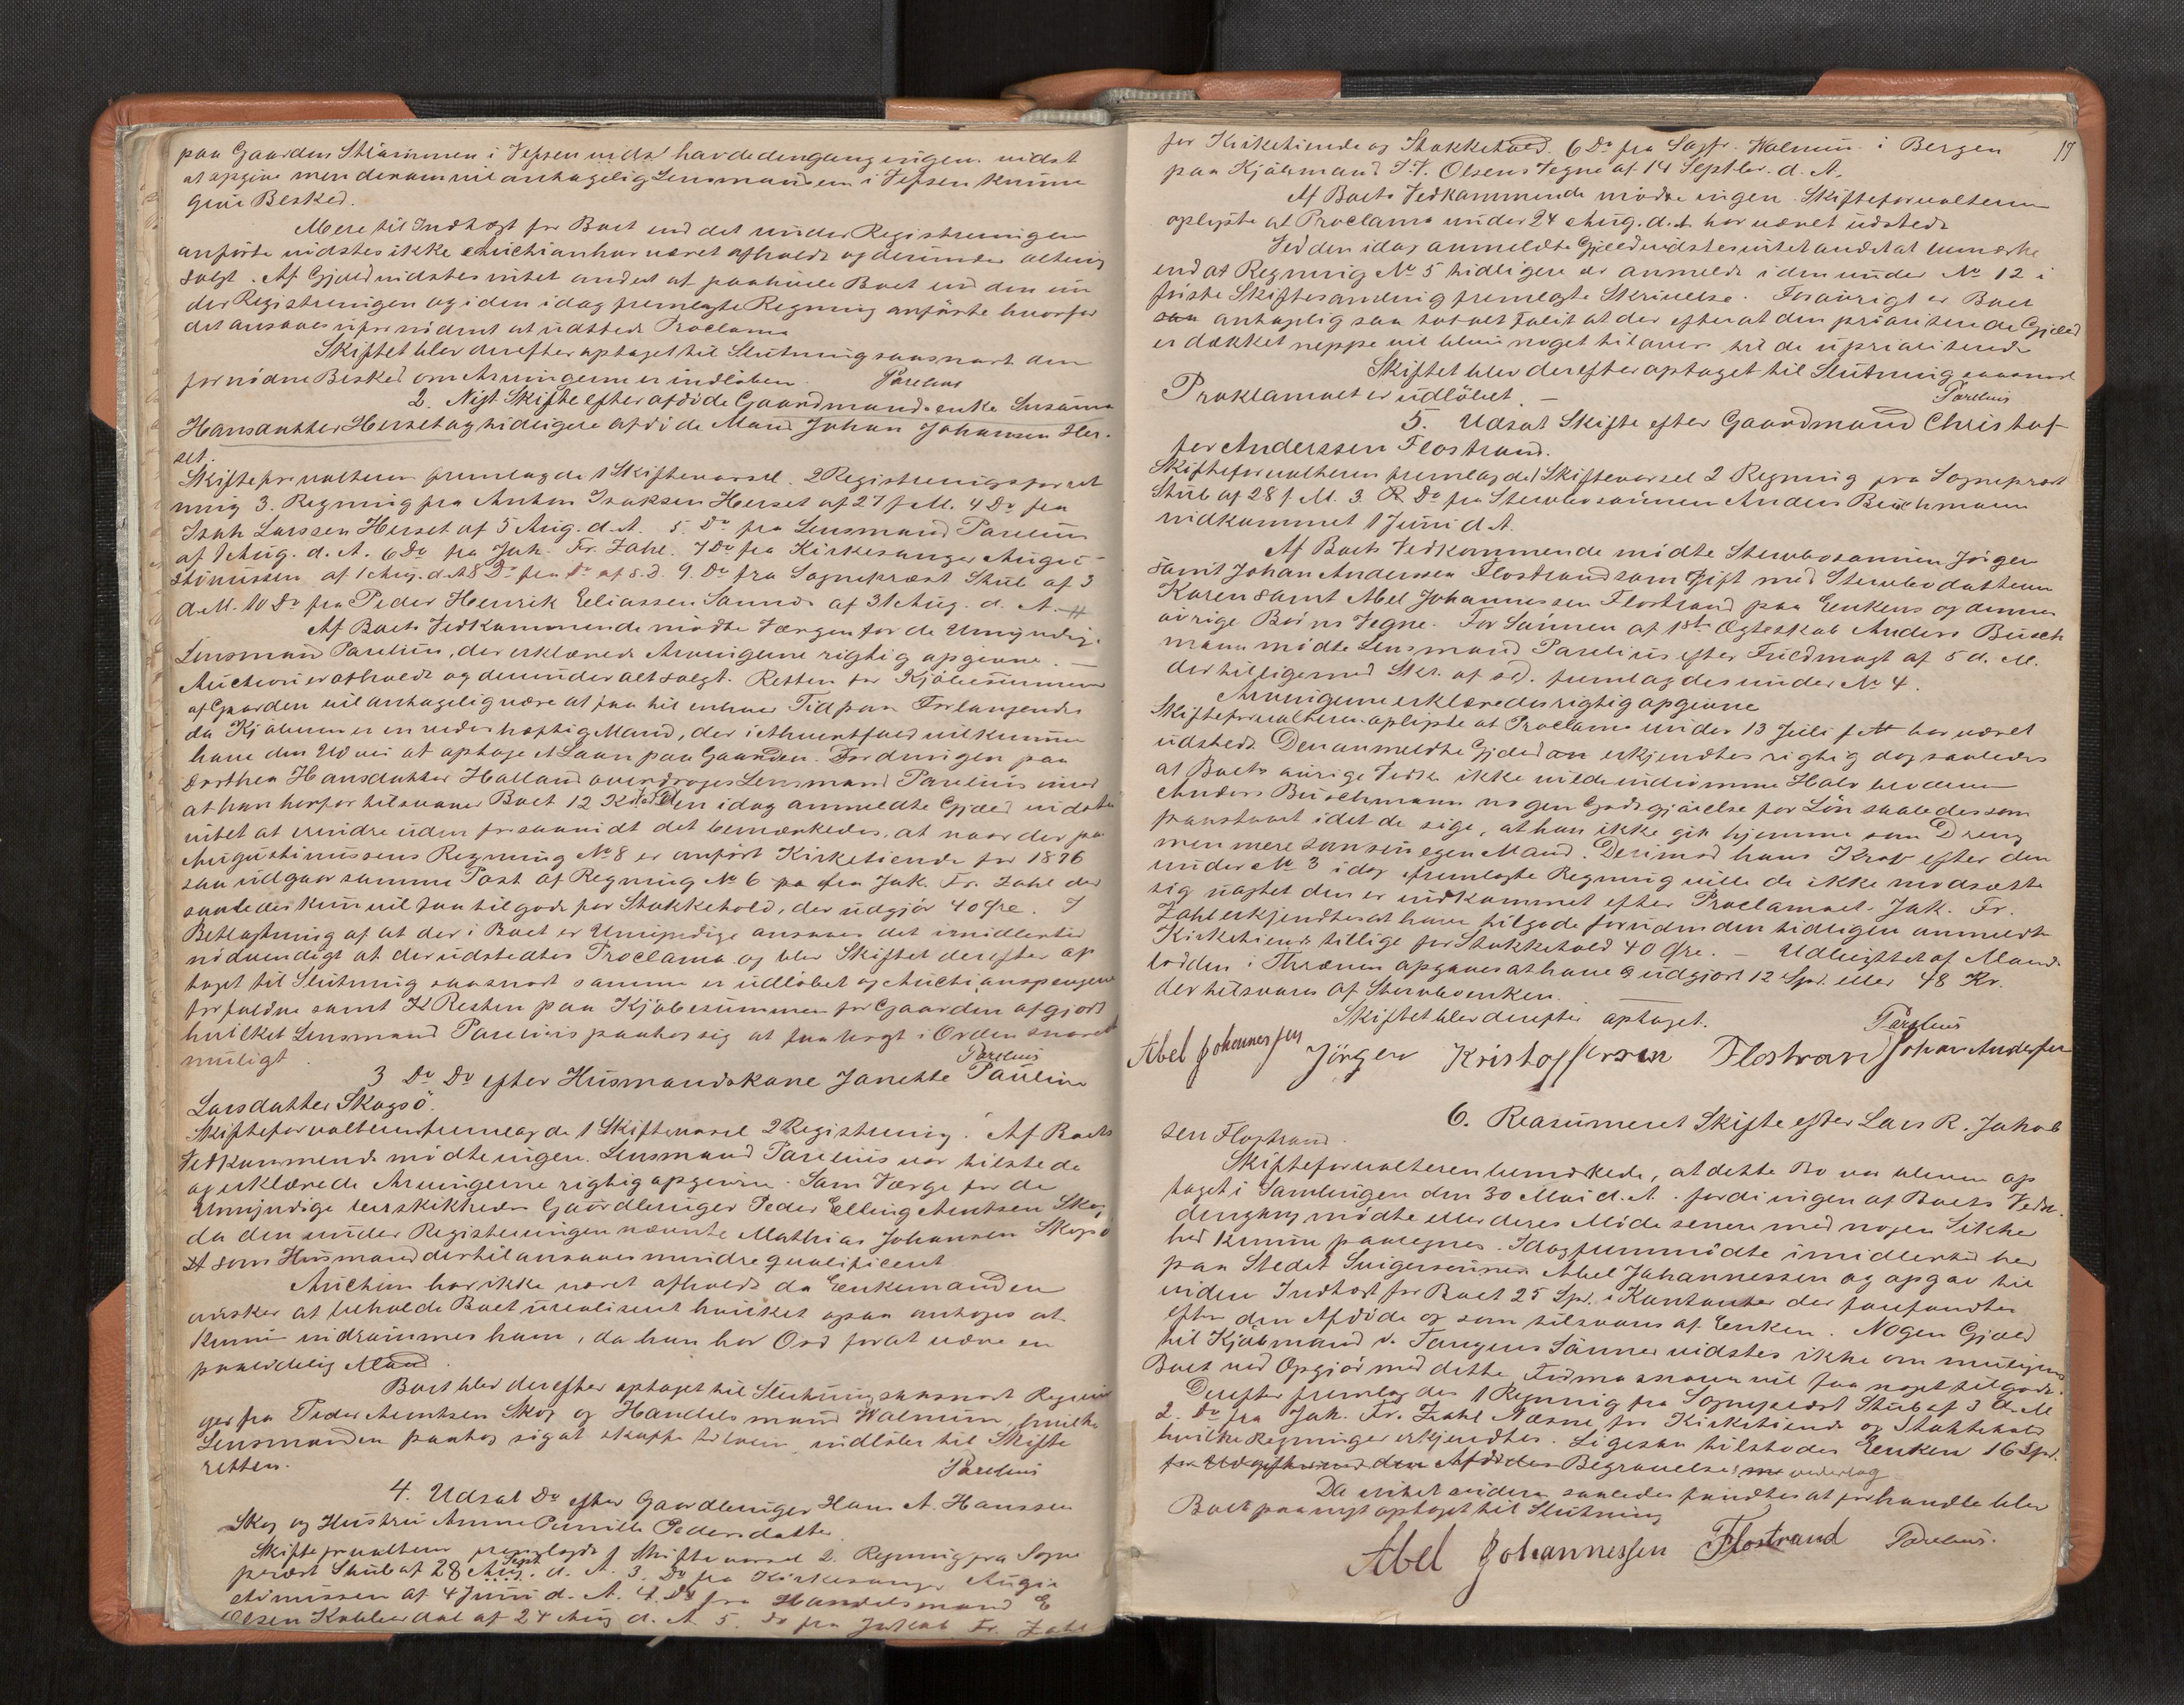 paa Gaarden Strømmen i Vefsen vidste havde dengang ingen vidst
at opgive men derom vil antagelig Lensmanden i Vefsen kunne
give Besked.
Mere til Indtægt for Boet end det under Registreringen
anførte vidstes ikke Auction har været afholdt og derunder alting
solgt. Af Gjæld vidstes intet andet at paahvile Boet end den un
der Registreringen og i den idag fremlagte Regning anførte hvorfor
det ansaaes ufornødent at udstede Proclama
Skiftet blev derefter optaget til Slutning saasnart den
fornødne Besked om Arvingerne er indløben. Parelius
2. Nyt Skifte efter afdøde Gaardmandsenke Susanna
Hansdatter Herset og tidligere afdøde Mand Johan Johansen Her-
set.
Skifteforvalteren fremlagde 1 Skiftevarsel. 2 Registreringsforret
ning 3. Regning fra Anton Isaksen Herset af 27 f. M. 4 Do fra
Isak Larssen Herset af 5 Aug. d. A. 5 Do fra Lensmand Parelius
af 1 Aug. d. A. 6 Do fra Jak. Fr. Zahl. 7 Do fra Kirkesanger Augu-
stinussen af 1 Aug. d. A 8 Do fra Do af s. D. 9. Do fra Sogneprest Stub af 3
d. M. 10 Do fra Peder Henrik Eliassen Sannes af 31 Aug. d. A.
Af Boets Vedkommende mødte Værgen for de Umyndige
Lensmand Parelius, der erklærede Arvingerne rigtig opgivne. —
Auction er afholdt og derunder alt solgt. Resten for Kjøbesummen
af Gaarden vil antagelig være at faa til enhver Tid paa Forlangende
da Kjøberen er en vederhæftig Mand, der i Ahventfald vil kunne
have den Udvei at optage et Laan paa Gaarden. Fordringen paa
Dorthea Hansdatter Halland overdroges Lensmand Parelius mod
at han herfor tilsvarer Boet 12 Kr. Ved den idag anmeldte Gjæld vidstes
intet at erindre uden forsaavidt det bemærkedes, at naar der paa
Augustinussens Regning No 8 er anført Kirketiende for 1876
saa udgaar samme Post af Regning No 6 fra Jak. Fr. Zahl der
saaledes kun vil faa tilgode for Stakkehold, der udgjør 40 Øre. I
Betragtning af at der i Boet er Umyndige ansaaes det imidlertid
nødvendigt at der udstedtes Proclama og blev Skiftet derefter op
taget til Slutning saasnart samme er udløbet og Auctionspengene
forfaldne samt Resten paa Kjøbesummen for Gaarden afgjort
hvilket Lensmand Parelius paatog sig at faa bragt i Orden snarest
muligt. Parelius
3 Do Do efter Husmandskone Janette Pauline
Larsdatter Skogsø.
Skifteforvalteren fremlagde 1 Skiftevarsel 2 Registrering. Af Boets
Vedkommende mødte ingen. Lensmand Parelius var tilstede
og erklærede Arvingerne rigtig opgivne. Som Værge for de
Umyndige beskikkedes Gaardbruger Peder Elling Arntsen Skog
da den under Registreringen nævnte Mathias Johansen Skogsø
som Husmand dertil ansaaes mindre qvalificeret
Auction har ikke været afholdt da Enkemanden
ønsker at beholde Boet urealiseret hvilket ogsaa antoges at
kunne indrømmes ham, da han har Ord for at være en
paalidelig Mand.
Boet blev derefter optaget til Slutning saasnart Regnin
ger fra Peder Arntsen Skog og Handelsmand Walnum, hvilke
Lensmanden paatog sig at skaffe tilveie, indløber til Skifte
retten. Parelius
4. Udsat Do efter Gaardbruger Hans A. Hanssen
Skog og Hustru Anne Pernille Pedersdatter.
Skifteforvalteren fremlagde 1 Skiftevarsel 2. Regning fra Sogne
prest Stub af 28 Aug. Sept. d. A. 3. Do fra Kirkesanger Augu
stinussen af 4 Juni d. A. 4. Do fra Handelsmand E
Olsen Kobberdal af 24 Aug d. A. 5. Do fra Jakob Fr. Zahl
17
for Kirketiende og Stakkehold. 6 Do fra Sagfr. Walnum i Bergen
paa Kjøbmand J. V. Olsens Vegne af 14 Septbr. d. A.
Af Boets Vedkommende mødte ingen. Skifteforvalteren
oplyste at Proclama under 24 Aug. d. A. har været udstedt
Ved den idag anmeldte Gjæld vidstes intet andet at bemærke
end at Regning No 5 tidligere er anmeldt i den under No 12 i
første Skiftesamling fremlagte Skrivelse. Forøvrigt er Boet
saa antagelig saa totalt fallit at der efter at den prioriterede Gjæld
er dækket neppe vil blive noget tilovers til de uprioriterede
Skiftet blev derefter optaget til Slutning saasnart
Proklamaet er udløbet. — Parelius
5. Udsat Skifte efter Gaardmand Christof-
fer Anderssen Flostrand.
Skifteforvalteren fremlagde 1 Skiftevarsel 2 Regning fra Sogneprest
Stub af 28 f. M. 3. Do fra Stervbosønnen Anders Buschmann
indkommet 1 Juni d. A.
Af Boets Vedkommende mødte Stervbosønnen Jørgen
samt Johan Anderssen Flostrand som gift med Stervbodatteren
Karen samt Abel Johannessen Flostrand paa Enkens og dennes
øvrige Børns Vegne. For Sønnen af 1ste Ægteskab Anders Busch
mann mødte Lensmand Parelius efter Fuldmagt af 5 d. M.
der tilligemed Skr. af s. D. fremlagdes under No 4.
Arvingerne erklæredes rigtig opgivne
Skifteforvalteren oplyste at Proclama under 13 Juli f. A. har været
udstedt. Den anmeldte Gjæld erkjendtes rigtig dog saaledes
at Boets øvrige Vedk. ikke vilde indrømme Halvbroderen
Anders Buschmann nogen Godtgjørelse for Løn saaledes som
paastaaet idet de sige, at han ikke gik hjemme som Dreng
men mere som sin egen Mand. Derimod hans Krav efter den
under No 3 idag fremlagte Regning ville de ikke modsætte
sig uagtet den er indkommet efter Proclamaet. Jak. Fr.
Zahl erkjendtes at have tilgode foruden den tidligere anmeldte
Kirketiende tillige for Stakkehold 40 Øre. — Udbyttet af Mand-
lodden i Thræna opgaves at have udgjort 12 Spd. eller 48 Kr.
der tilsvares af Stervboenken.
Skiftet blev derefter optaget. Parelius
Abel Johannessen Jörgen Kristoffersen Flostrand Johan Andersen
6. Reasumeret Skifte efter Lars R. Jakob
sen Flostrand.
Skifteforvalteren bemærkede, at dette Bo var bleven op
taget i Samlingen den 30 Mai d. A. fordi ingen af Boets Vedk.
dengang mødte eller deres Møde senere med nogen Sikker
hed kunne paaregnes. Idag fremmødte imidlertid her
paa Stedet Svigersønnen Abel Johannessen og opgav til
videre Indtægt for Boet 25 Spd. i Kontanter der forefandtes
efter den Afdøde og som tilsvares af Enken. Nogen Gjæld
til Kjøbmand A. Tangens Sønner vidstes ikke om muligens
Boet ved Opgjør med dette Firma snarere vil faa noget tilgode.
Derefter fremlagdes 1 Regning fra Sogneprest Stub af 3 d. M
2. Do fra Jak. Fr. Zahl Næsne for Kirketiende og Stakkehold
hvilke Regninger erkjendtes. Ligesaa tilstodes Enken 16 Spd.
for Udgifter ved den Afdødes Begravelse
Da intet videre saaledes fandtes at forhandle blev
Boet paanyt optaget til Slutning
Abel Johannessen Flostrand Parelius.